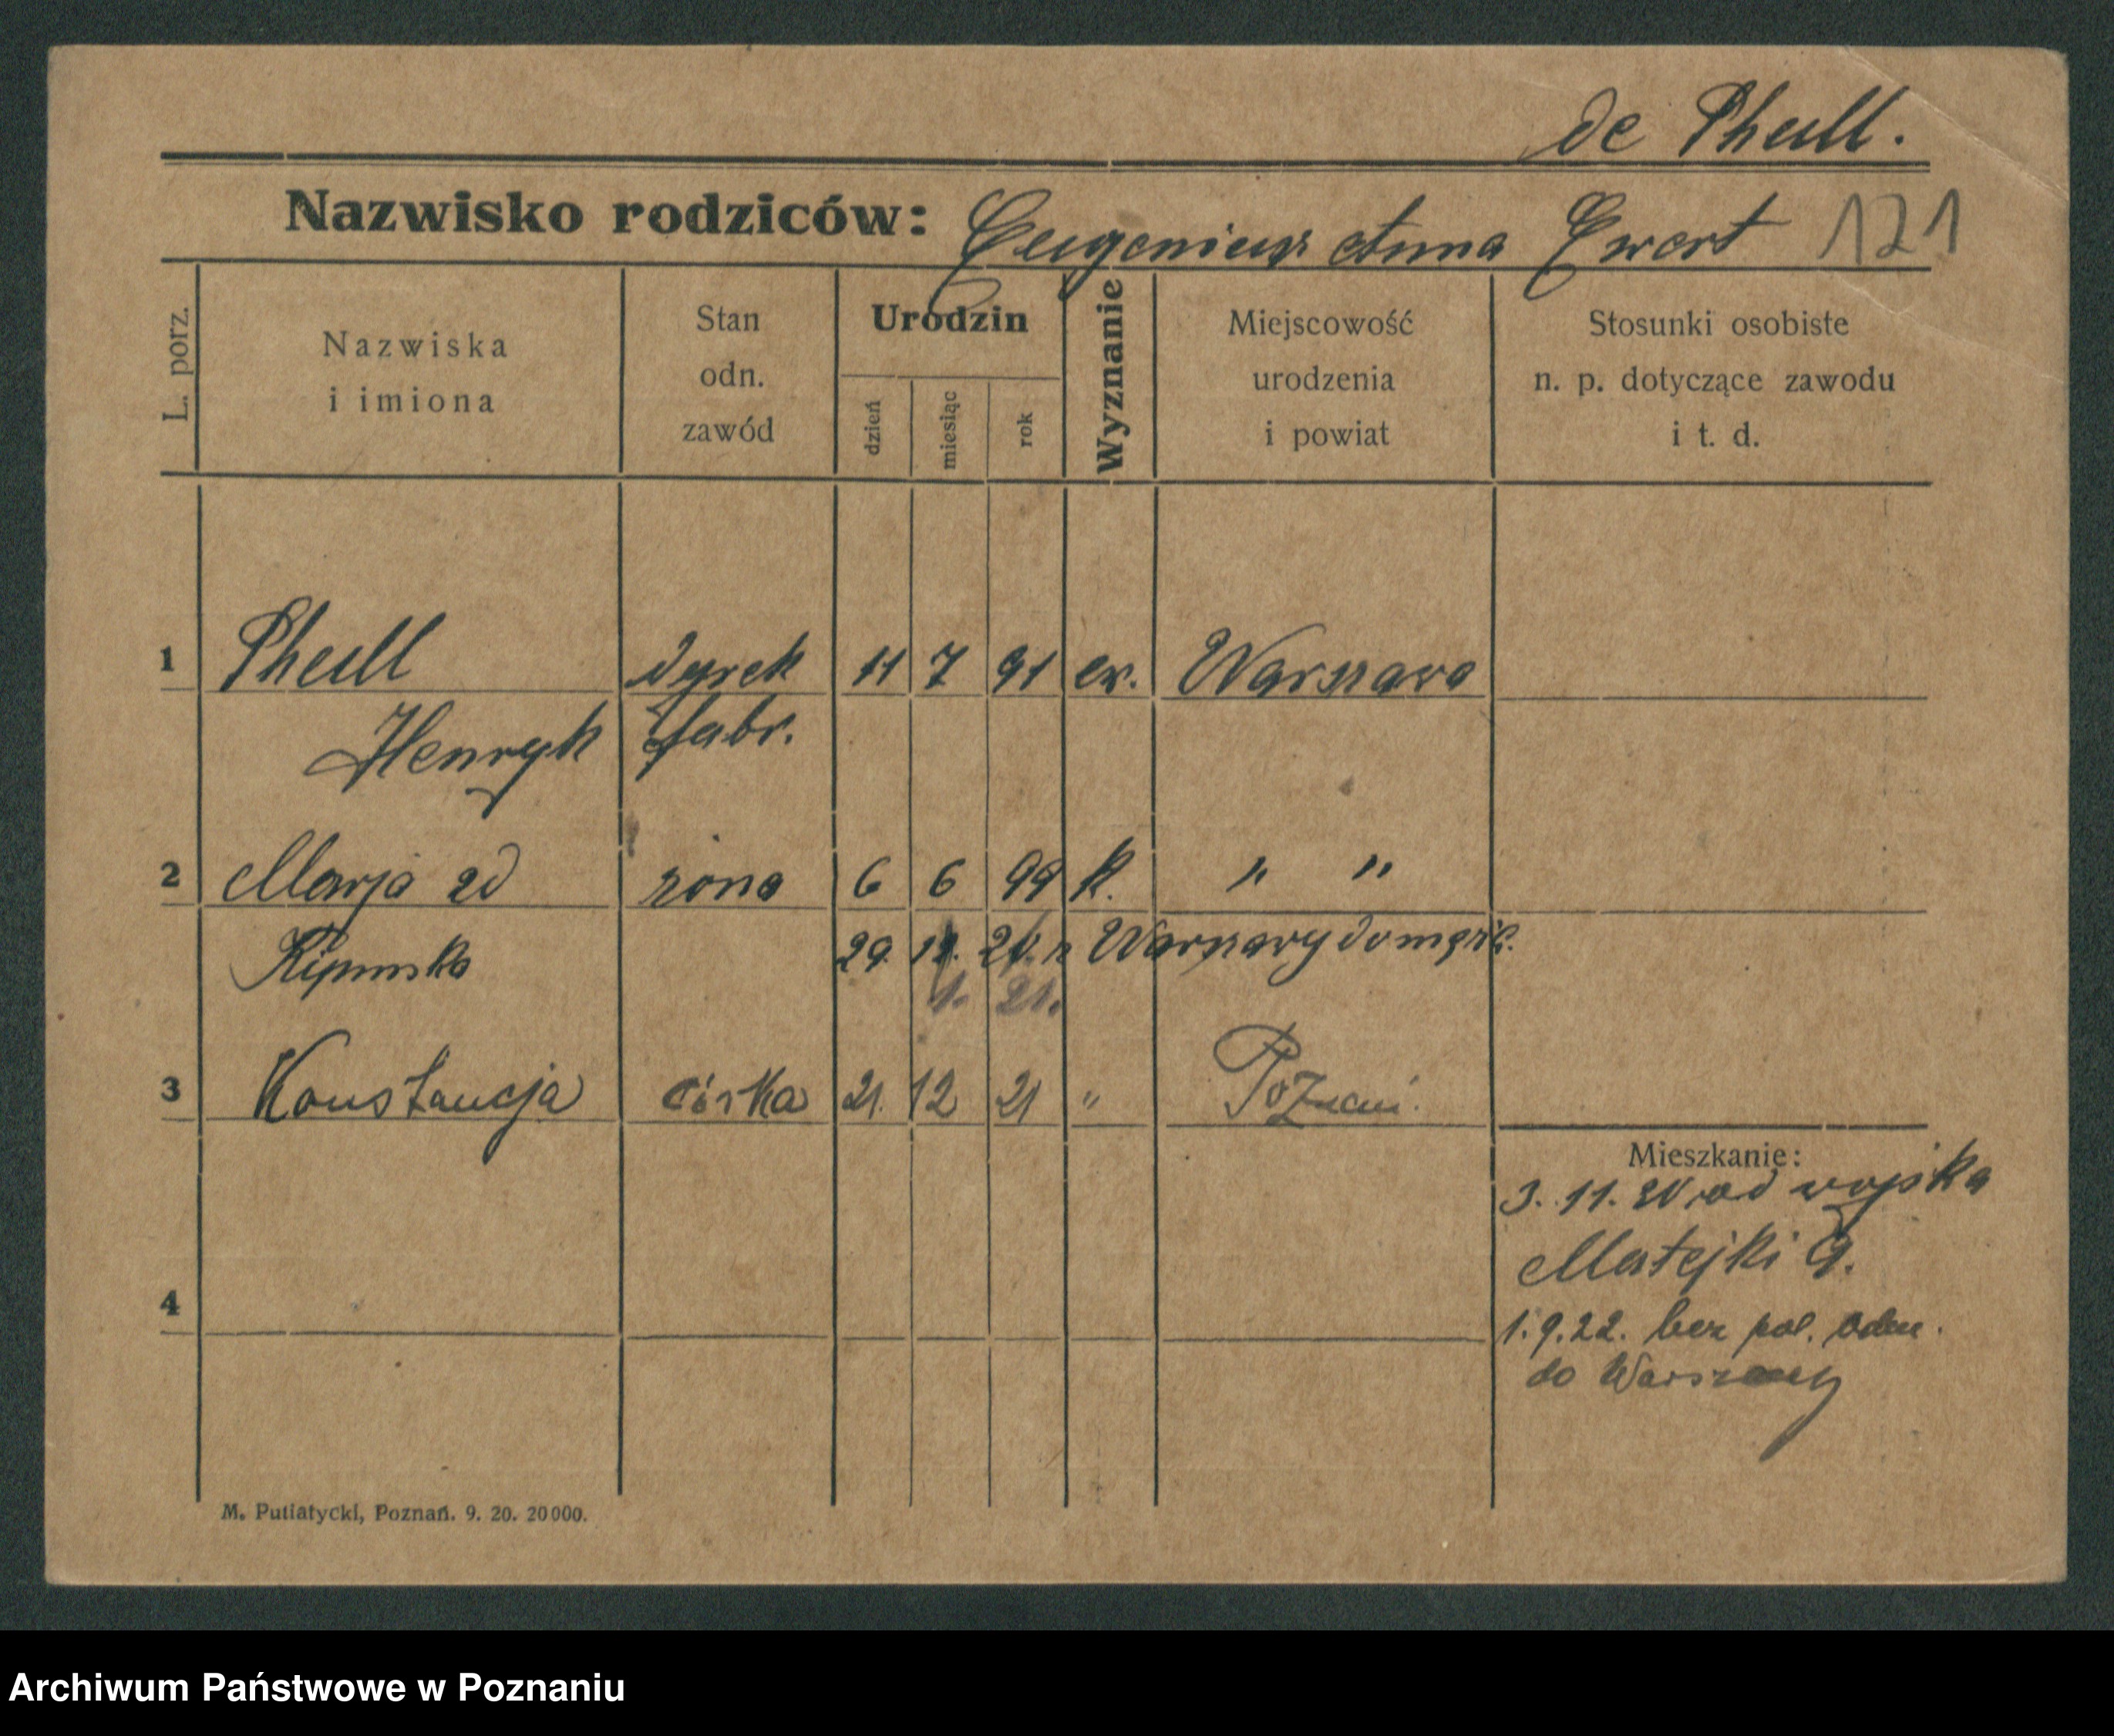 de Phull.
Nazwisko rodziców: Eugeniusz Anna Ewert 121
L. porz.
Nazwiska
i imiona
Stan
odn.
zawód
Urodzin
dzień
miesiąc
rok
Wyznanie
Miejscowość
urodzenia
i powiat
Stosunki osobiste
n. p. dotyczące zawodu
i t. d.
1 Phull dyrek 11 7 91 ew. Warszawa
Henryk fabr.
2 Marja zd żona 6 6 99 k. " "
29. z Warszawy do męża.
1. 21.
3 Konstancja córka 21. 12 21 " Poznań.
Mieszkanie:
3. 11. 20 od wojska
Matejki 9.
4
1.9.22. bez pol. odm.
do Warszawy
M. Putiatycki, Poznań. 9. 20. 20000.
Archiwum Państwowe w Poznaniu